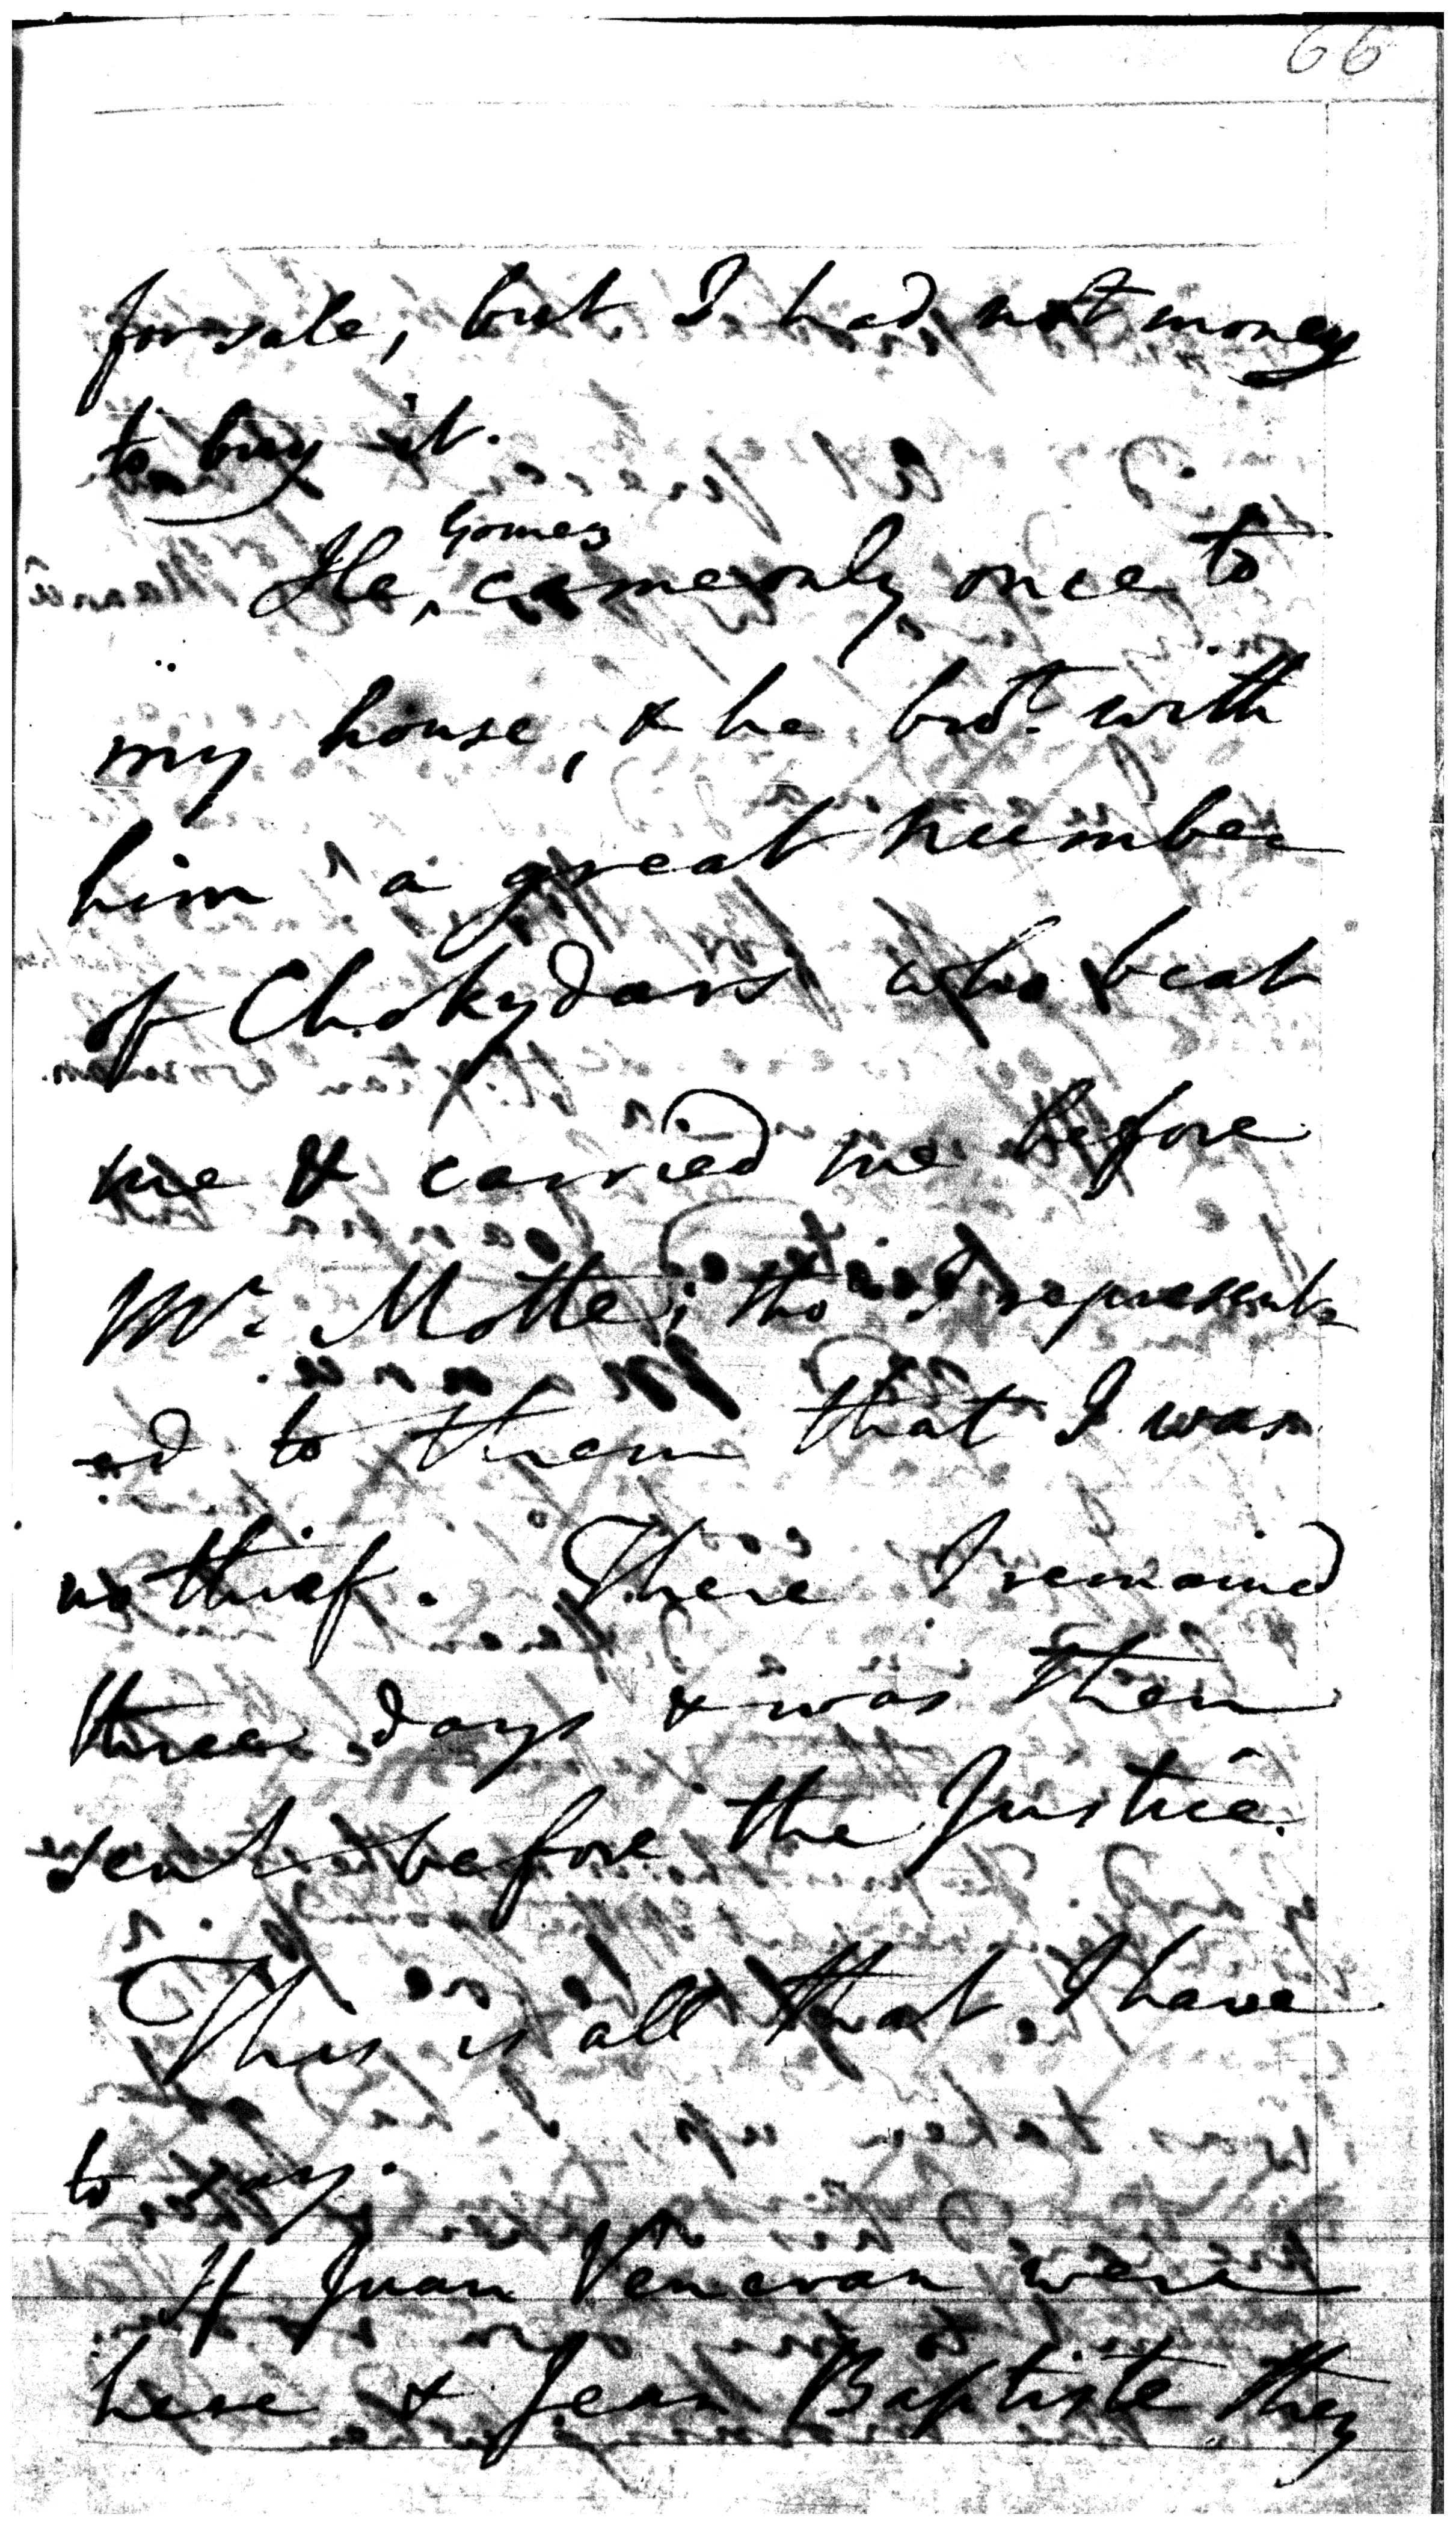 66
for sale, but I had not money
to buy it.
Gomes
He, came only once to
my house, & he brot. with
him a great number
of Chokydars who beat
me & carried me before
Mr. Motte; tho I represent-
ed to them that I was
no thief. There I remained
three days & was then
sent before the Justice.
This is all that I have
to say.
If Juan Venevan were
here & Jean Baptiste they